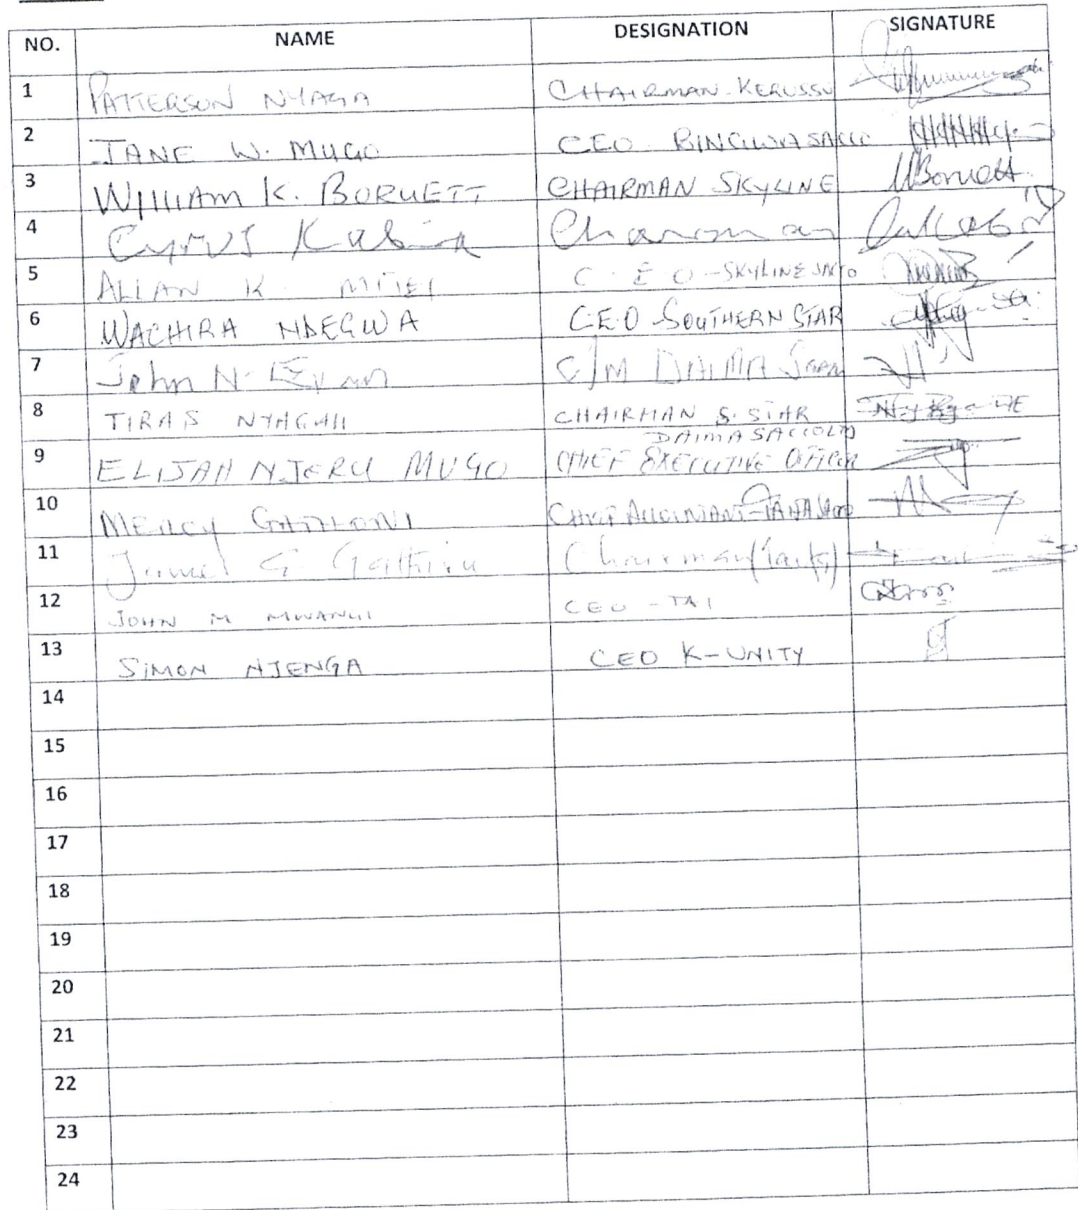 NO. NAME DESIGNATION SIGNATURE
1 PATTERSON NYAGA CHAIRMAN-KERUSSU
2 JANE W. MUGO CEO BINGWA SACCO
3 WILLIAM K. BORUETT CHAIRMAN SKYLINE WBoruett
4 Cyrus Kabira Chairman
5 ALLAN K. MITEI C.E.O - SKYLINE SACCO
6 WACHIRA NDEGWA C.E.O SOUTHERN STAR
7 John N. C/M DAIMA
8 TIRAS NYAGAH CHAIRMAN S. STAR
DAIMA SACCO LTD
9 ELIJAH NJERU MUGO CHIEF EXECUTIVE OFFICER
10 MERCY CHIEF ACCOUNTANT-
11 James G Gathiru Chairman
12 JOHN M MWANGI CEO - TAI
13 SIMON NJENGA CEO K-UNITY
14
15
16
17
18
19
20
21
22
23
24